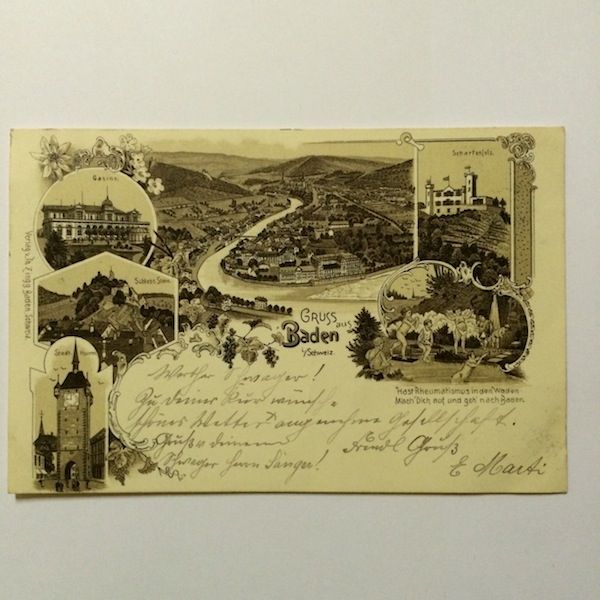 Casino.
Schartenfels.
Schloss Stein.
Stadt Thurm.
GRUSS aus
Baden
i/Schweiz.
"Hast Rheumatismus in den Waden
Mach' Dich auf und geh' nach Baden.
Werther Schwager!
Zu deiner Kur wünsche
schönes Wetter angenehme Gesellschaft.
Gruss deinem
Schwager Herrn Sänger!
Freundl Gruß
E Marti
Verlag v. Zipp Baden Schweiz